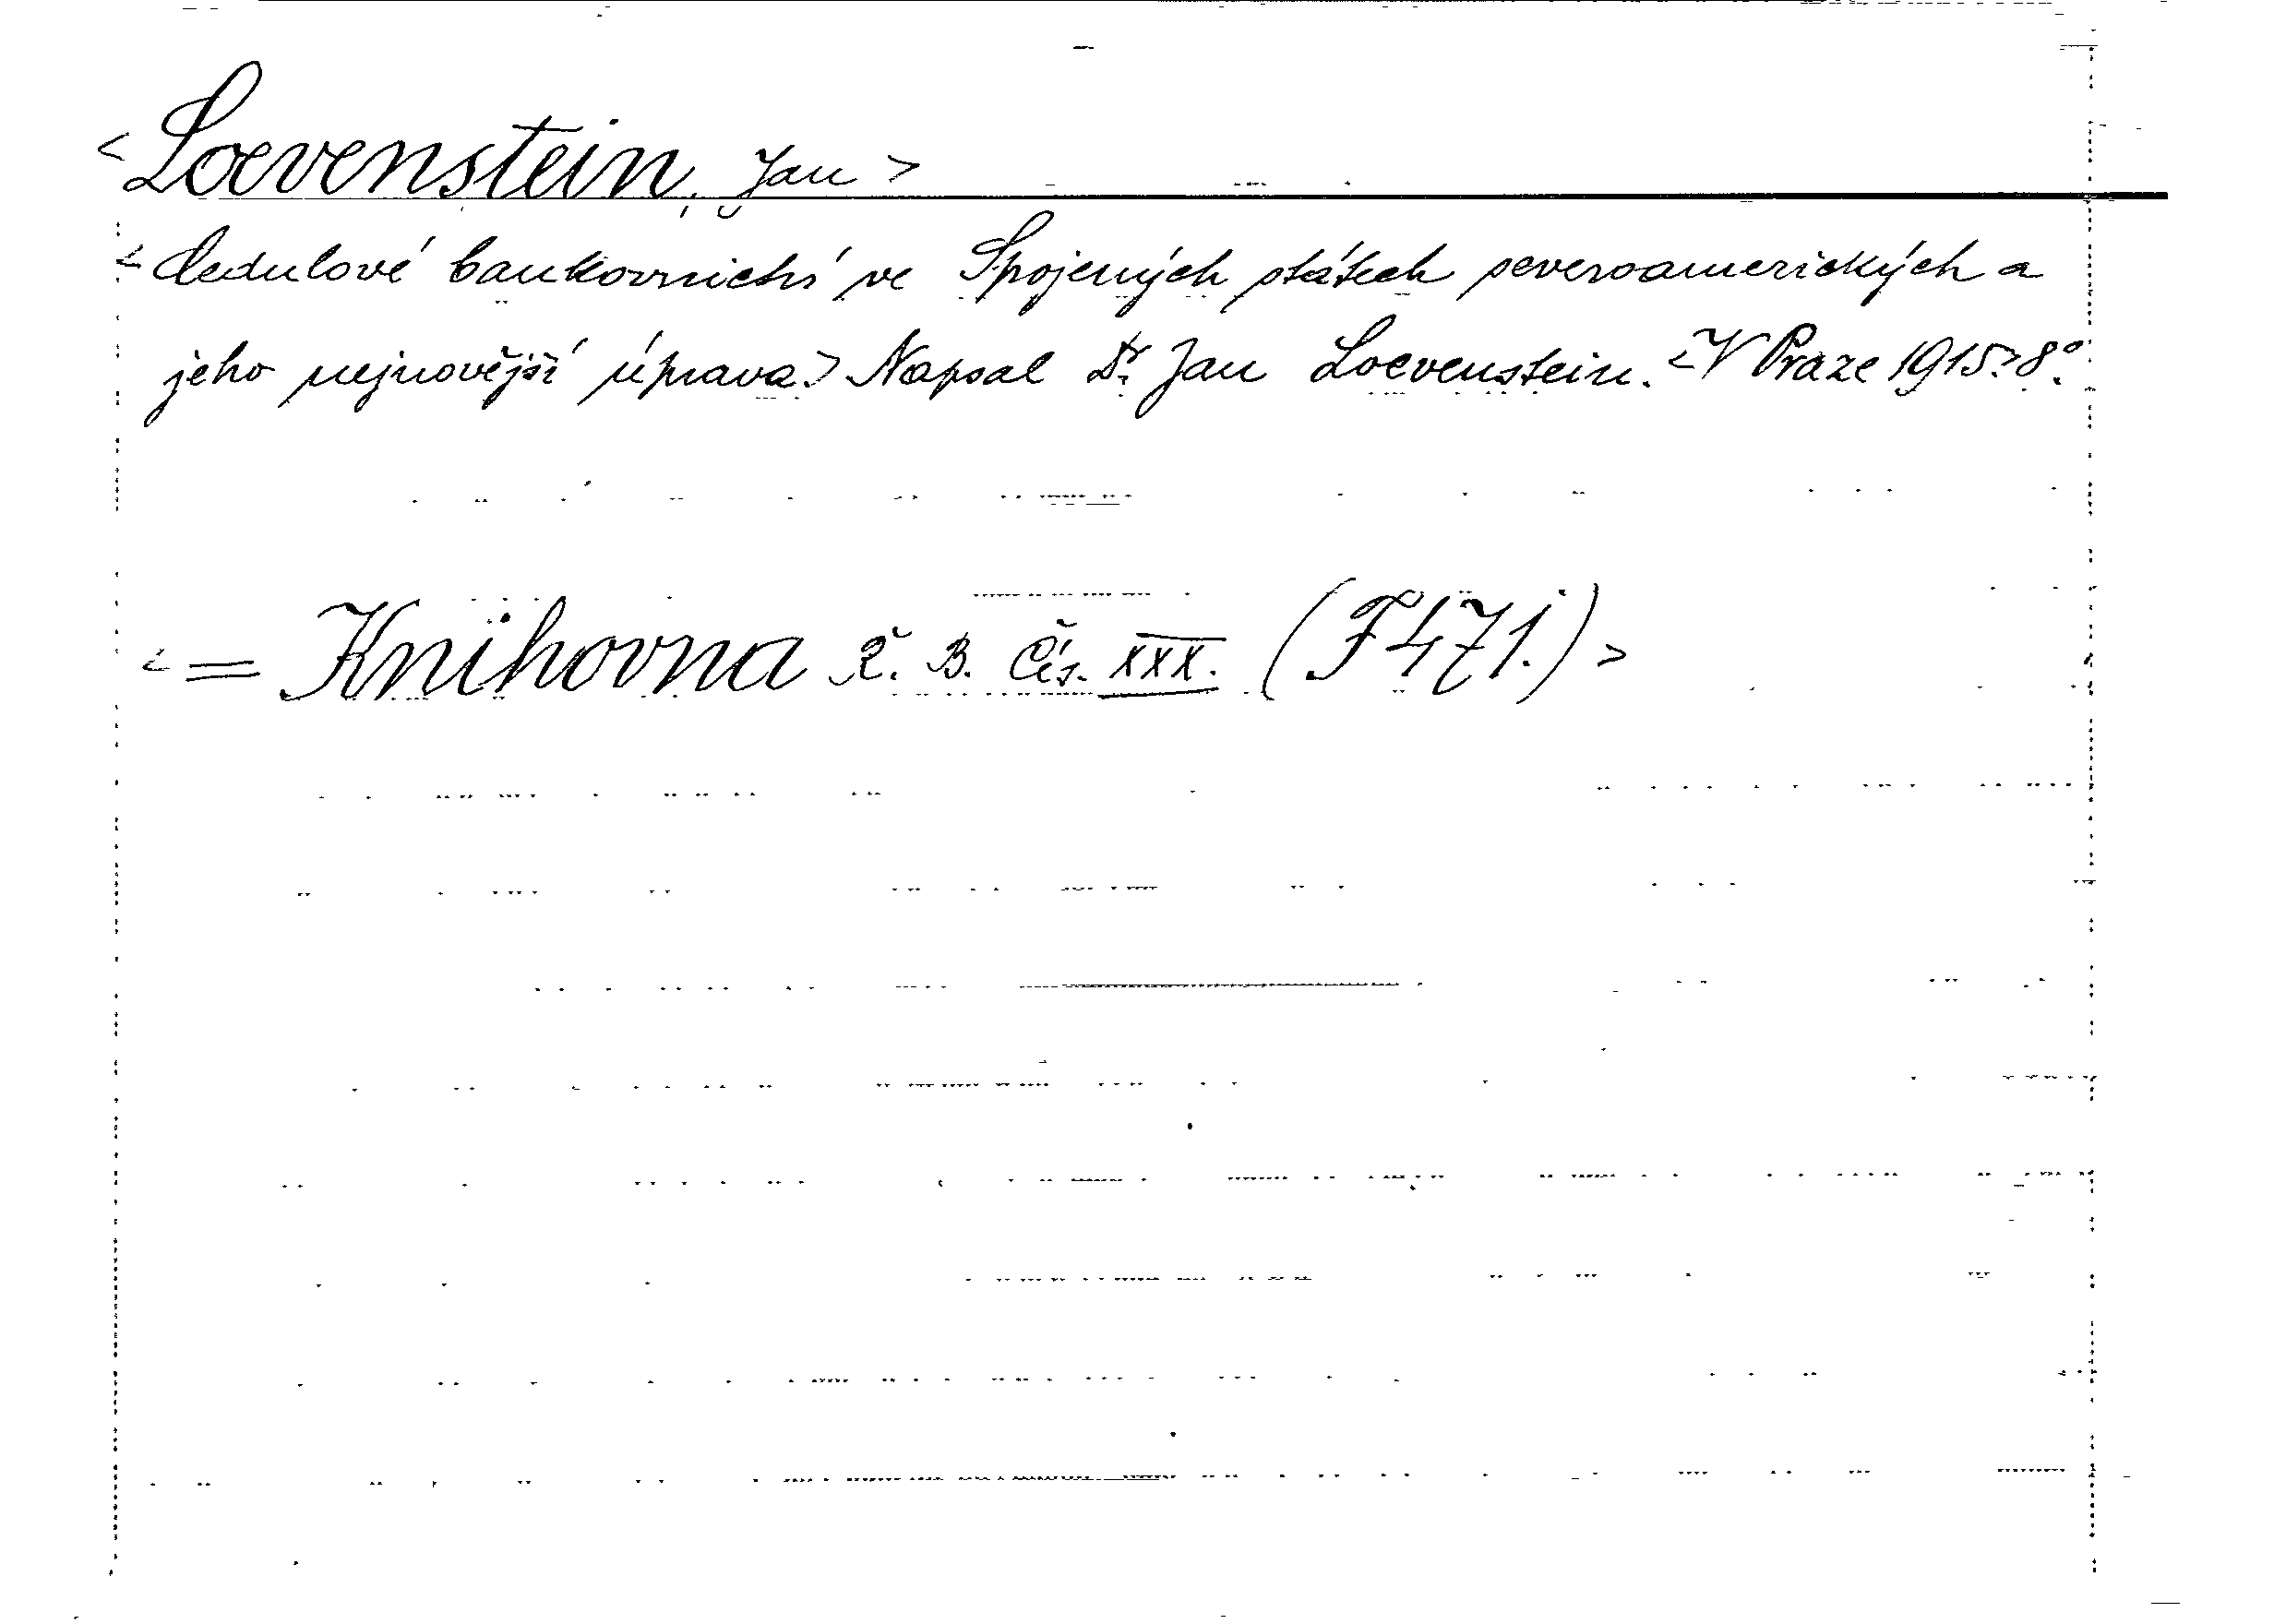 <Loevenstein, Jan>
<Cedulové bankovnictví ve Spojených státech severoamerických a
jeho nejnovější úprava.> Napsal Dr. Jan Loevenstein. <V Praze 1915.> 8°.
<= Knihovna Č. B. Čís. XXX. (F471.)>